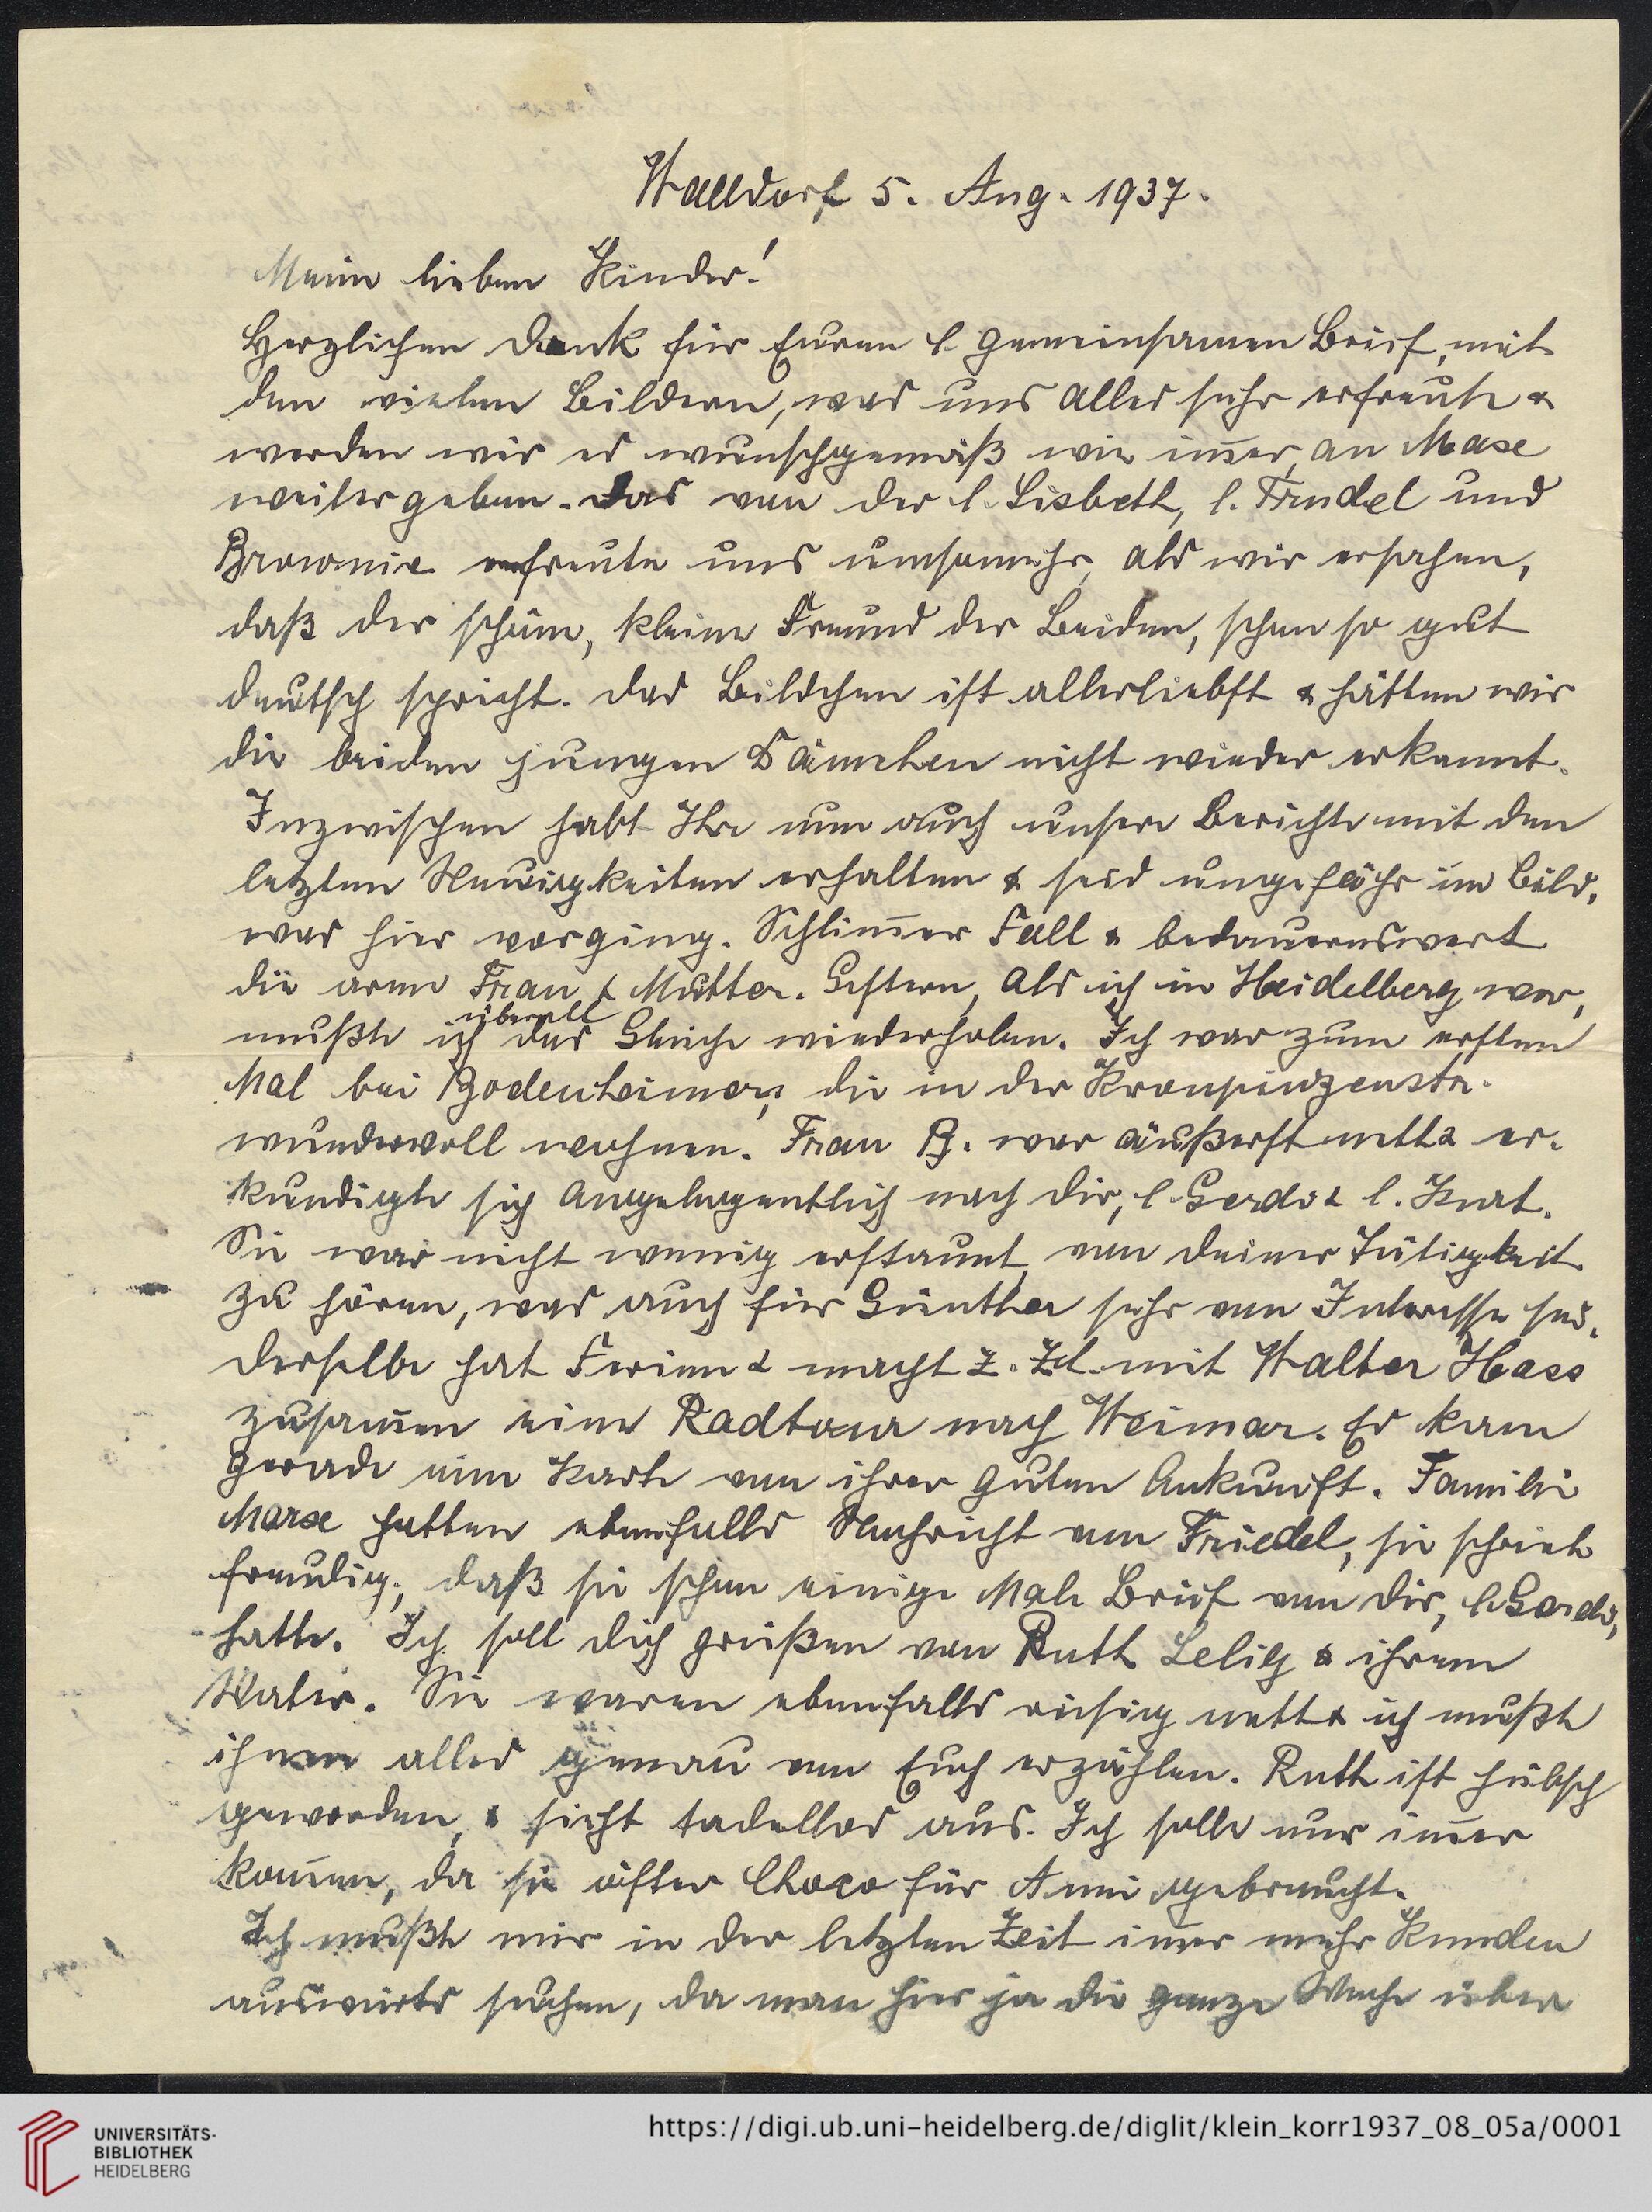 Walldorf 5. Aug. 1937.
Meine lieben Kinder!
Herzlichen Dank für Euren l. gemeinsamen Brief, mit
den vielen Bildern, was uns alles sehr erfreute &
werden wir es wunschgemäß wie im̅er, an Maxe
weitergeben. Das von der l. Lisbeth, l. Trudel und
Brownie erfreute uns umsomehr, als wir ersahen,
daß der schöne, kleine Freund der Beiden, schon so gut
deutsch spricht. Das Bildchen ist allerliebst & hätten wir
die beiden jungen Dämchen nicht wieder erkannt.
Inzwischen habt Ihr nun auch unsere Berichte mit den
letzten Neuigkeiten erhalten & seid ungefähr im Bild,
was hier vorging. Schlim̅er Fall & bedauernswert
die arme Frau & Mutter. Gestern, als ich in Heidelberg war,
mußte ich überall das Gleiche wiederholen. Ich war zum ersten
Mal bei Bodenheimers, die in der Kronprinzenstr.
wundervoll wohnen. Frau B. war äußerst nett & er-
kundigte sich angelegentlich nach Dir, l. Gerdi & l. Kurt.
Sie war nicht wenig erstaunt, von Deiner Tätigkeit
zu hören, was auch für Günther sehr von Interesse sei.
Derselbe hat Ferien & macht z. Zt. mit Walter Hass
zusam̅en eine Radtour nach Weimar. Es kam
gerade eine Karte von ihrer guten Ankunft. Familie
Marx hatten ebenfalls Nachricht von Friedel, sie schrieb
freudig, daß sie schon einige Male Brief von Dir, l. Gerdi,
hatte. Ich soll Dich grüßen von Ruth Selig & ihrem
Vater. Sie waren ebenfalls riesig nett & ich mußte
ihnen alles genau von Euch erzählen. Ruth ist hübsch
geworden, & sieht tadellos aus. Ich solle nur im̅er
kom̅en, da sie öfter Choco für Anni gebraucht.
Ich mußte mir in der letzten Zeit im̅er mehr Kunden
auswärts suchen, da man hier ja die ganze Woche über
UNIVERSITÄTS-
BIBLIOTHEK
HEIDELBERG
https://digi.ub.uni-heidelberg.de/diglit/klein_korr1937_08_05a/0001